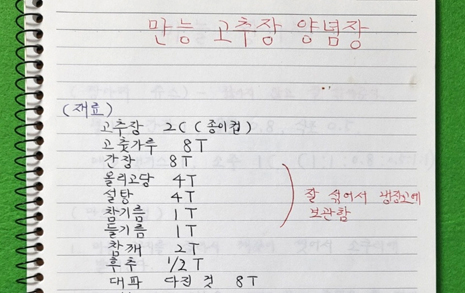 만능 고추장 양념장
(재료)
고추장 2C (종이컵)
고춧가루 8T
간장 8T
올리고당 4T
설탕 4T
참기름 1T
들기름 1T
참깨 2T
후추 1/2T
대파 다진 것 8T
잘 섞어서 냉장고에
보관함